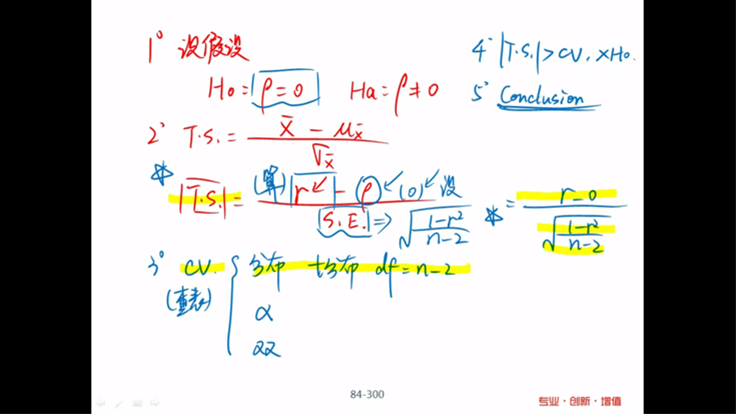 1° 设假设
H0: ρ = 0 Ha: ρ ≠ 0
2° T.S. = (x̄ − μx̄) / σx̄
* |T.S.| = ((算) |r| − ρ (0) 设) / S.E. ⇒ √((1−r²)/(n−2)) * = (r−0) / √((1−r²)/(n−2))
3° CV. { 分布 t分布 df = n−2
(查表)
α
双
4° |T.S.| > CV, ×H0.
5° Conclusion
84-300
专业·创新·增值